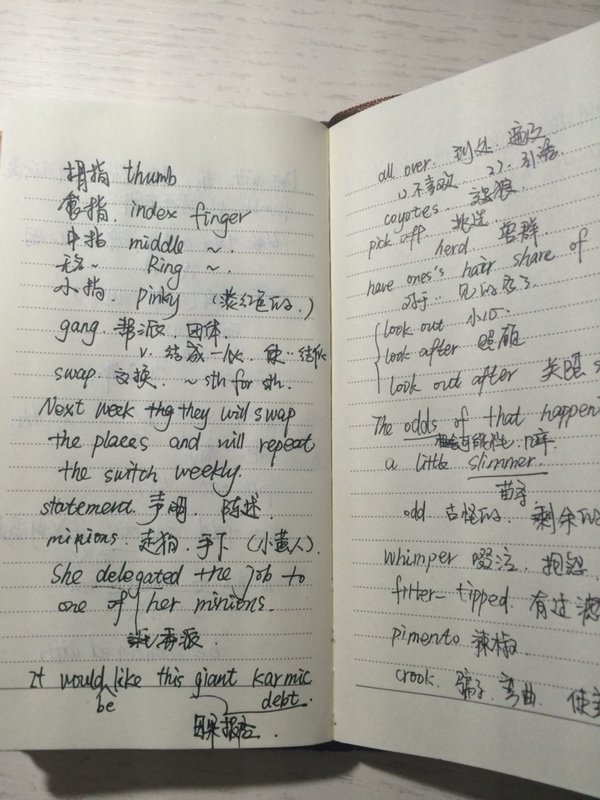 拇指 thumb
食指. index finger
中指 middle ~.
无名~ Ring ~.
小指. pinky (淡红色的.)
gang. 帮派 团体.
v. 结成一伙. 使··结伙
swap. 交换. ~sth for sth.
Next week they will swap
the places and will repeat
the switch weekly.
statement. 声明. 陈述.
minions 走狗. 手下 (小黄人).
She delegated the job to
one of her minions.
委派
It would like this giant karmic
be debt.
因果报应.
all over. 到处. 遍及
coyotes.
pick off 挑选
herd. 兽群
have ones's hair share of
look out 小心
look after 照顾
look out after 关照
The odds of that happeni
可能性. 几率
a little slimmer.
苗条
odd 古怪的 剩余的
whimper 啜泣. 抱怨
filter-tipped. 有过滤
pimento 辣椒
crook. 骗子. 弯曲. 使